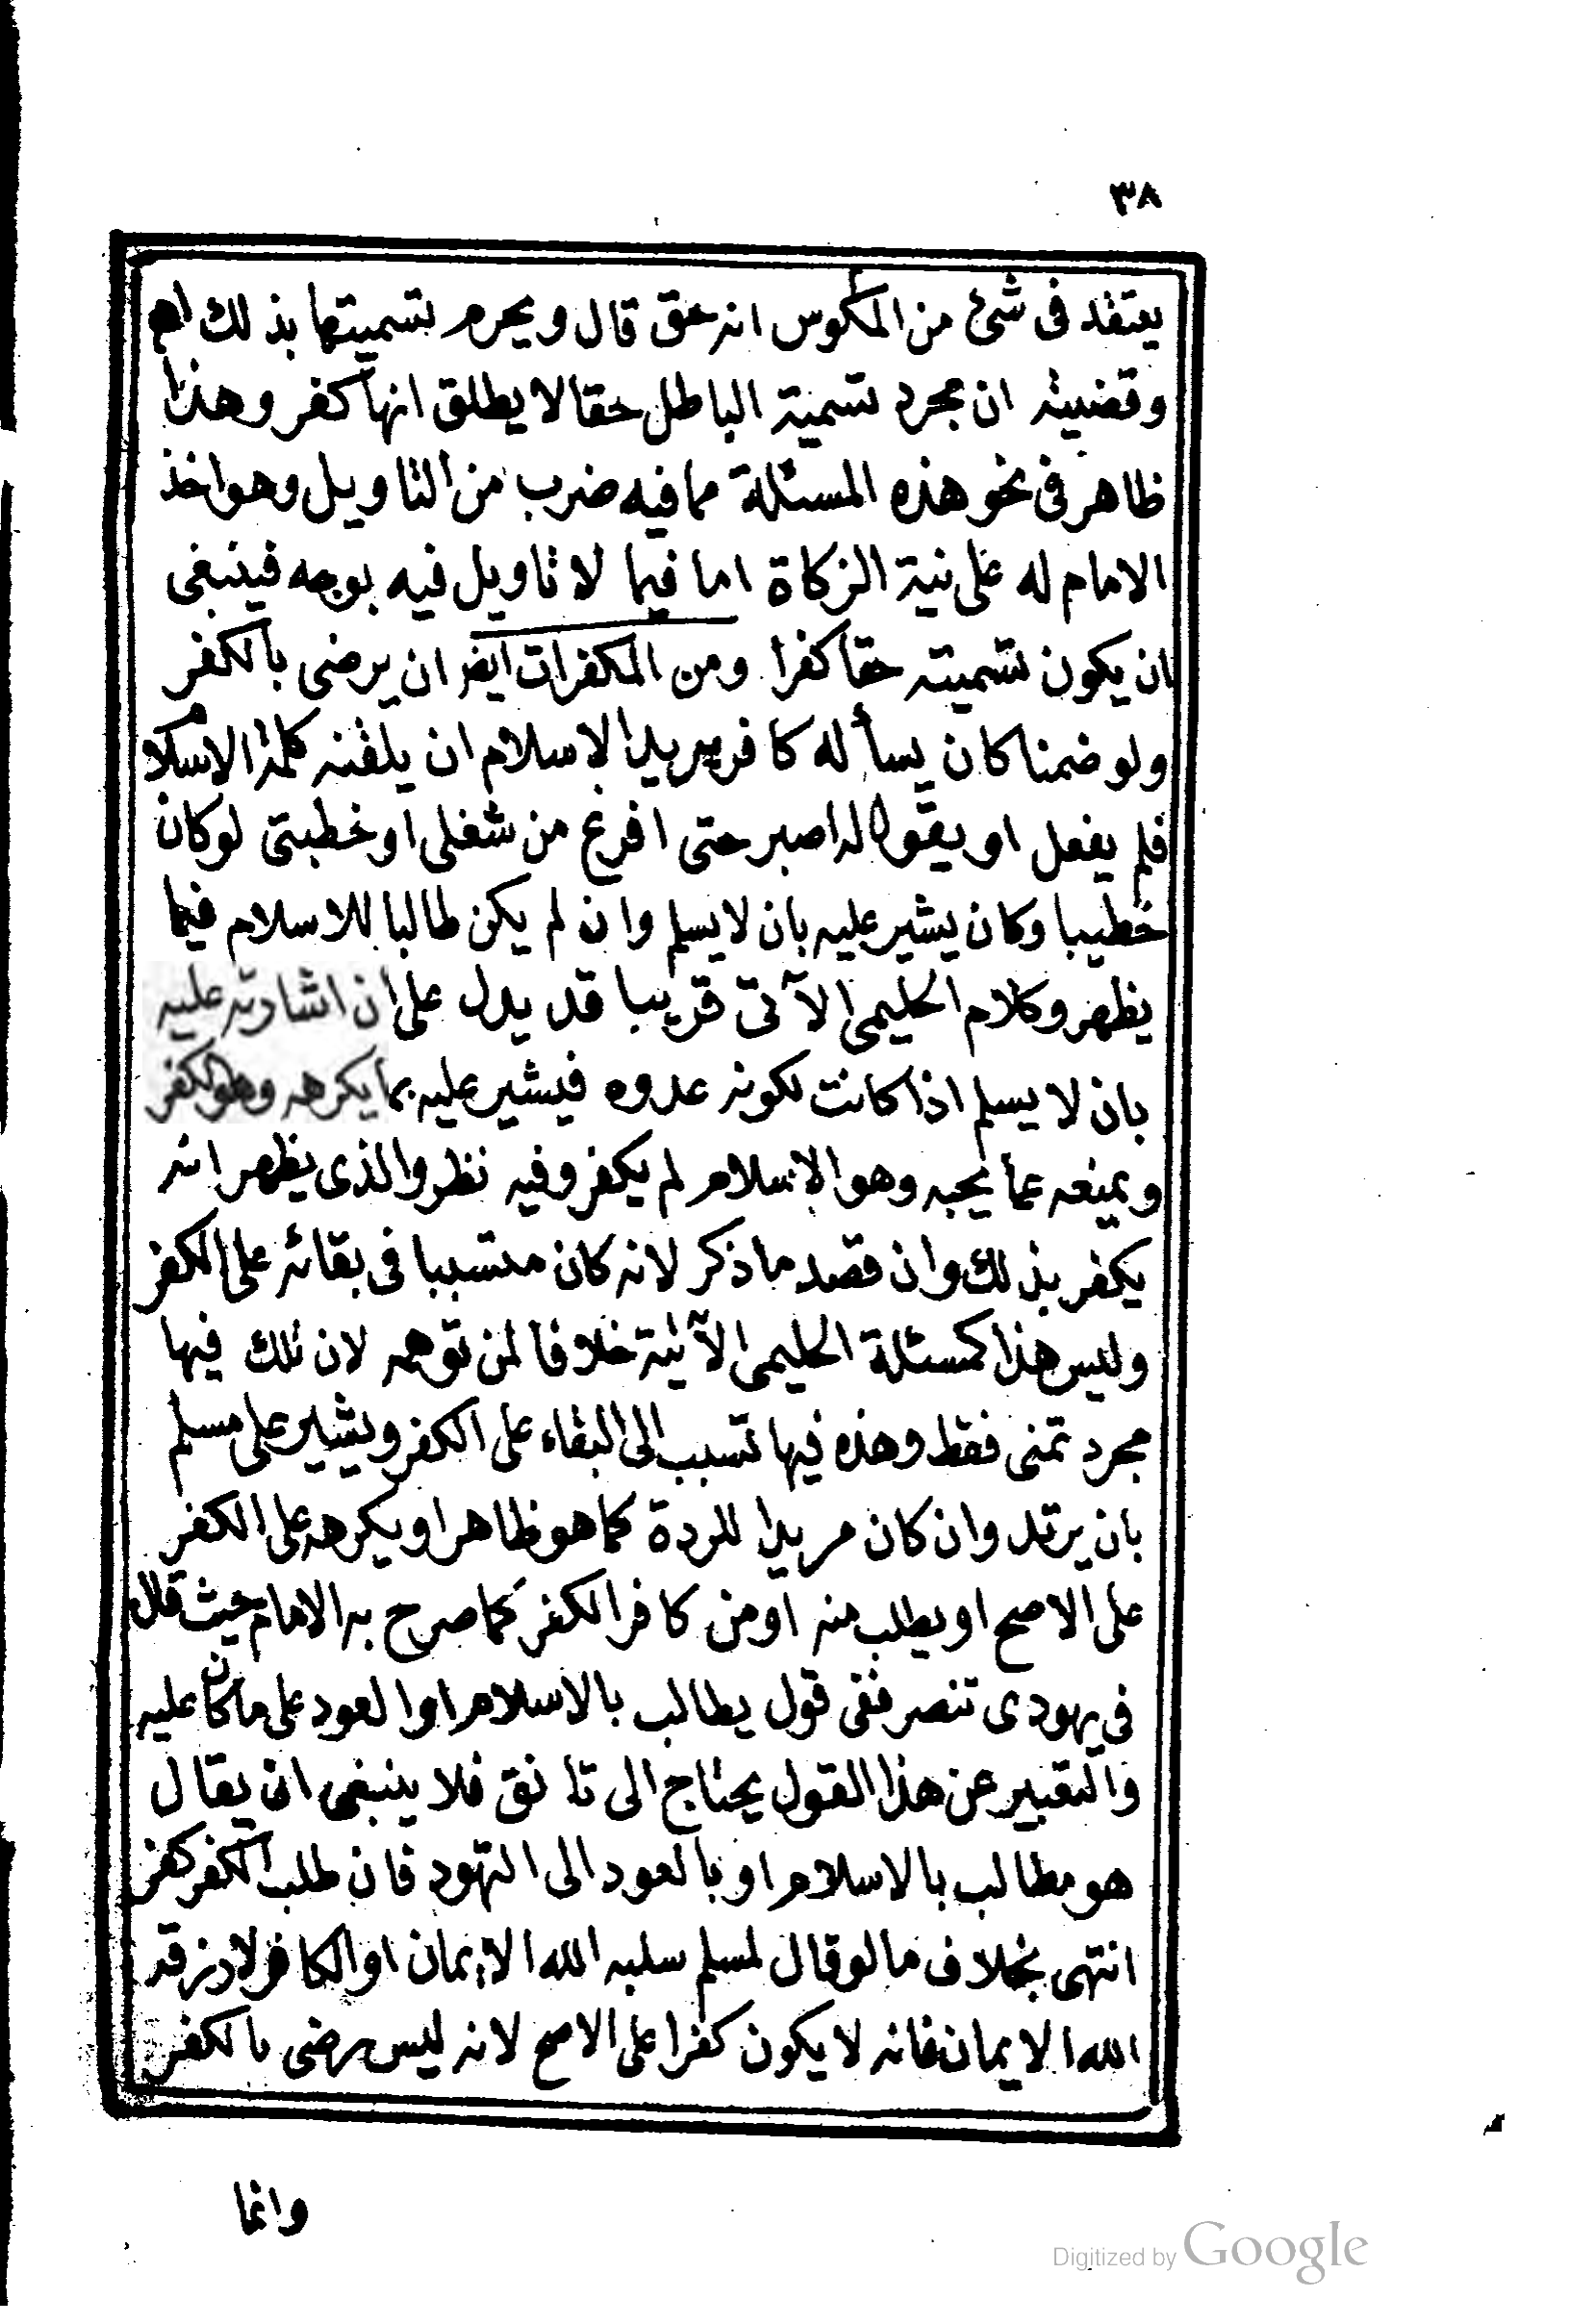 ٣٨
يعتقد فى شئ من المكوس انه حق قال ويحرم تسميتها بذلك اهـ
وقضيته ان مجرد تسمية الباطل حقا لا يطلق انها كفر وهذا
ظاهر فى نحو هذه المسئلة مما فيه ضرب من التاويل وهو اخذ
الامام له على نية الزكاة اما فيما لا تاويل فيه بوجه فينبغى
ان يكون تسميته حقا كفرا ومن المكفرات ايضا ان يرضى بالكفر
ولو ضمنا كان يسأله كافر يريد الاسلام ان يلقنه كلمة الاسلام
فلم يفعل او يقول له اصبر حتى افرغ من شغلى او خطبتى لو كان
خطيبا وكان يشير عليه بان لا يسلم وان لم يكن طالبا للاسلام فيما
يظهر وكلام الحليمى الآتى قريبا قد يدل على ان اشارته عليه
بان لا يسلم اذا كانت لكونه عدوه فيشير عليه بما يكرهه وهو الكفر
ويمنعه عما يحبه وهو الاسلام لم يكفر وفيه نظر والذى يظهر انه
يكفر بذلك وان قصد ما ذكر لانه كان متسببا فى بقائه على الكفر
وليس هذا كمسئلة الحليمى الآتية خلافا لمن توهمه لان تلك فيها
مجرد تمنى فقط وهذه فيها تسبب الى البقاء على الكفر ويشير على مسلم
بان يرتد وان كان مريدا للردة كما هو ظاهر او يكرهه على الكفر
على الاصح او يطلب منه او من كافر الكفر كما صرح به الامام حيث قال
فى يهودى تنصر ففى قول يطالب بالاسلام او العود على ما كان عليه
والتعبير عن هذا القول يحتاج الى تانق فلا ينبغى ان يقال
هو مطالب بالاسلام او بالعود الى التهود فان طلب الكفر كفر
انتهى بخلاف ما لو قال لمسلم سلبه الله الايمان او الكافر لا رزقه
الله الايمان فانه لا يكون كفرا على الاصح لانه ليس رضى بالكفر
وانما
Digitized by Google